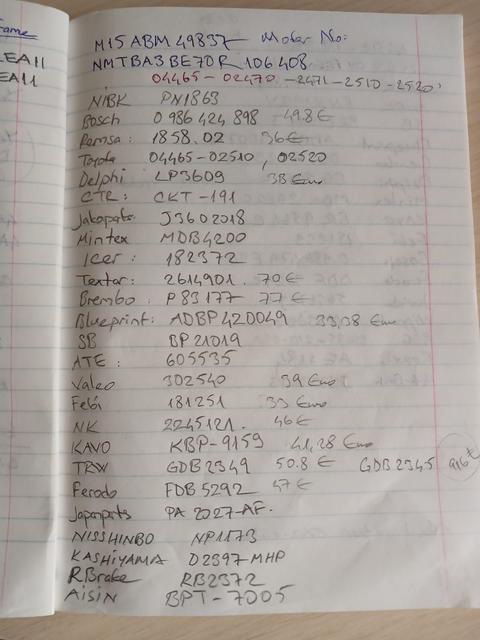 rame
LEA11
EA11
M15ABM49837 Motor No:
NMTBA3BE70R106408
04465-02470 -2471-2510-2520'
NIBK PN1863
Bosch 0986424898 49.8€
Remsa: 1858.02 36€
Toyota 04465-02510, 02520
Delphi LP3609 38 Euro
CTR: CKT-191
Jakoparts J3602018
Mintex MDB4200
Icer: 182372
Textar: 2614901. 70€
Brembo: P83177 77€
Blueprint: ADBP420049 33,38 Euro
SB BP21019
ATE: 605535
Valeo 302540 39 Euro
Febi 181251 33 Euro
NK 2245121. 46€
KAVO KBP-9159 41,28 Euro
TRW GDB2349 50.8 € GDB2345
Ferodo FDB5292 47€
Japanparts PA 2027-AF.
NISSHINBO NP1173
KASHIYAMA D2397-MHP
R.Brake RB2372
AISIN BPT-7005